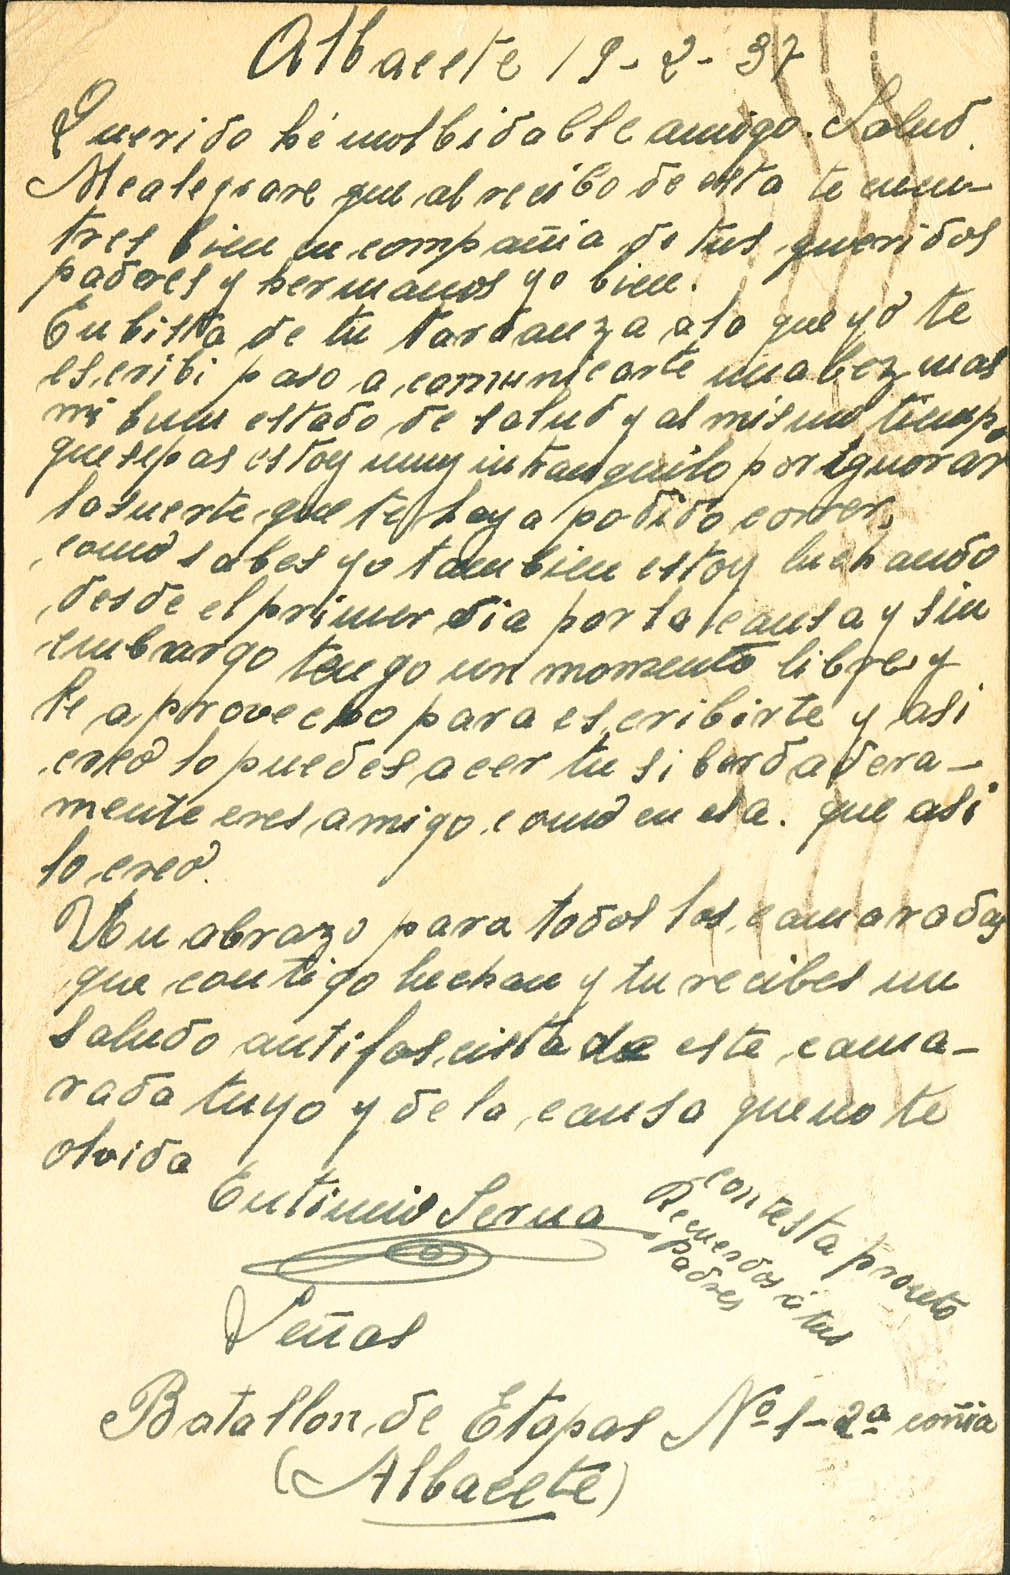 Albacete 19-2-37
Querido hé inolbidable amigo. Salud.
Mealegrare que al recibo de esta te encuen-
tres bien en compañia de tus queridos
paderes y hermanos yo bien.
En bista de tu tardanza a lo que yo te
escribi paso a comunicarte una bez mas
mi buen estado de salud y al mismo tiempo
que sepas estoy muy intranquilo por ignorar
la suerte que te haya podido correr,
como sabes yo tambien estoy luchando
desde el primer dia por la causa y sin
embargo tengo un momento libre y
le aprovecho para escribirte y asi
creo lo puedes acer tu si berdadera-
mente eres amigo como en esa. que asi
lo creo.
Un abrazo para todos los camaradas
que contigo luchan y tu recibes un
saludo antifascista de este cama-
rada tuyo y de la causa que no te
olvida
Eutimio Serna
contesta pronto
Recuerdos á tus
padres
Señas
Batallon de Etapas Nº 1-2ª coñia
(Albacete)